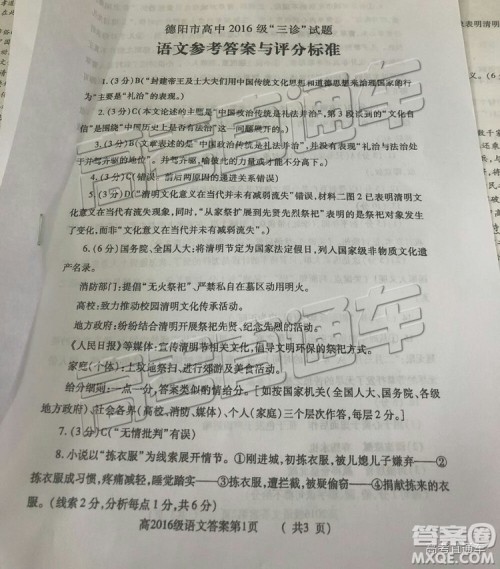 德阳市高中2016级“三诊”试题
语文参考答案与评分标准
1.(3分)B(“封建帝王及士大夫们用中国传统文化思想和道德思想来治理国家的行
为”主要是“礼治”的表现。)
2.(3分)C(本文论述的主题是“中国政治传统是礼法并治”,第3段谈到的“文化自
信”是围绕“中国历史上是否有法治”这一问题展开的。)
3.(3分)B(文章表述的是“中国政治传统是礼法并治”,并没有表现“礼治与法治处
于并驾齐驱的地位”。并驾齐驱,喻彼此的力量或才能不分高下。)
4.(3分)C(错误:前后两原因的递进关系错误)
5.(3分)D(“清明文化意义在当代并未有减弱流失”错误,材料二图2已表明清明文
化意义在当代有流失现象,同时,“从家祭扩展到先贤先烈祭祀”表明的是祭祀对象发生
了变化,而非“文化意义在当代并未有减弱流失”。)
6.(6分)国务院、全国人大:将清明节定为国家法定假日、列入国家级非物质文化遗
产名录。
消防部门:提倡“无火祭祀”,严禁私自在墓区动用明火。
高校:致力推动校园清明文化传承活动。
地方政府:纷纷结合清明开展祭祀先贤、纪念先烈的活动。
《人民日报》等媒体:宣传清明节文化,倡导文明环保的祭祀方式。
家庭(个体):上坟祭扫、进行郊游及美食活动。
给分细则:一点一分,答案类似酌情给分。[如按国家机关(全国人大、国务院、各级
地方政府)、社会各界(高校、消防、媒体)、个人(家庭)三个层次作答,每层2分。]
7.(3分)C(“无情批判”有误)
8.小说以“拣衣服”为线索展开情节。①刚进城,初拣衣服,被儿媳儿子嫌弃——②
拣衣服成习惯,疼痛减轻,睡觉踏实——③拣衣服,遭拦截,被疑偷窃——④捐献拣来的衣
服。(线索2分,分析每点1分,共6分)
高2016级语文答案第1页 (共3页)
高考直通车
高考直通车
答案圈